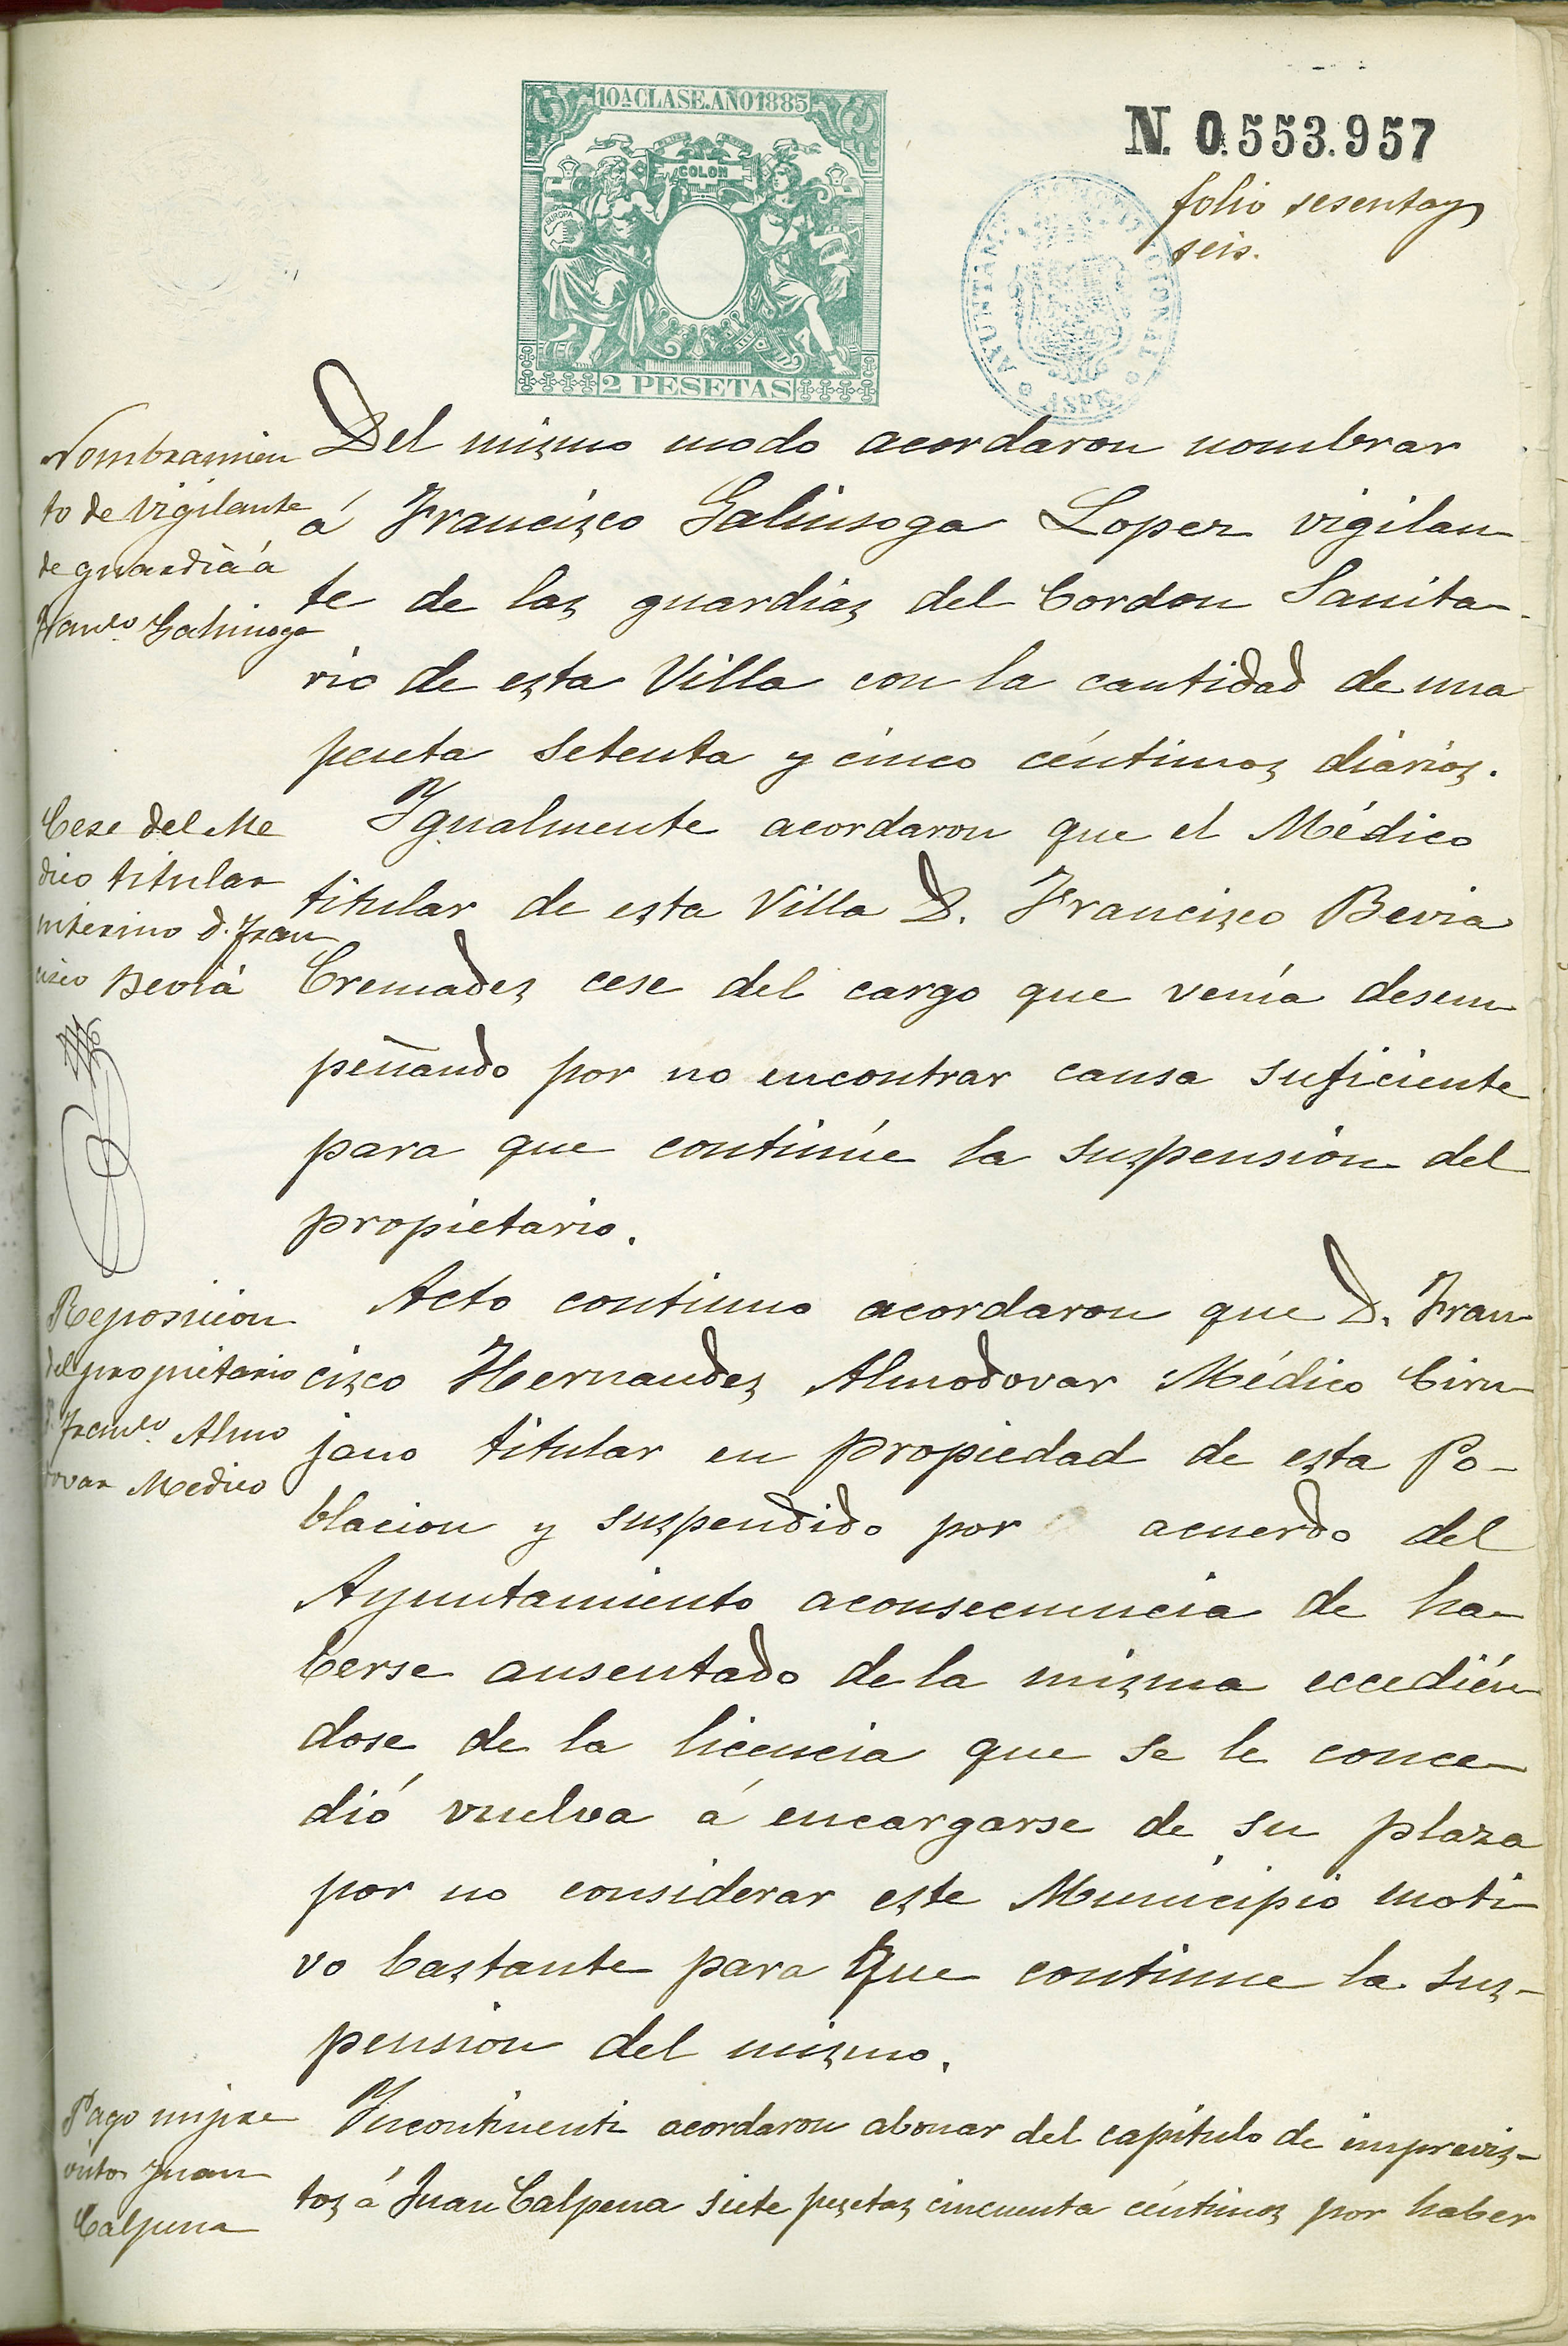 10ª CLASE. AÑO 1885
COLON
EUROPA
2 PESETAS
N. 0.553.957
folio sesenta y
seis.
AYUNTAMIENTO CONSTITUCIONAL
ASPE
Nombramien
to de vigilante
de guardia á
Franco. Galinsoga
Del mismo modo acordaron nombrar
á Francisco Galinsoga Lopez vigilan-
te de las guardias del Cordon Sanita-
rio de esta Villa con la cantidad de una
peseta setenta y cinco céntimos diarios.
Cese del Me
dico titular
interino d. Fran
cisco Beviá
Igualmente acordaron que el Médico
titular de esta Villa D. Francisco Bevia
Cremades cese del cargo que venía desem-
peñando por no encontrar causa suficiente
para que continúe la suspensión del
propietario.
Reposicion
del propietario
Dn. Franco. Almo
dovar Medico
Acto continuo acordaron que D. Fran-
cisco Hernandes Almodovar Médico Ciru-
jano titular en propiedad de esta Po-
blacion y suspendido por acuerdo del
Ayuntamiento aconsecuencia de ha-
berse ausentado de la misma eccedién-
dose de la licencia que se le conce-
dió vuelva á encargarse de su plaza
por no considerar este Municipio moti-
vo bastante para que continue la sus-
pension del mismo.
Pago impre
vistos Juan
Calpena
Incontinenti acordaron abonar del capítulo de imprevis-
tos á Juan Calpena siete pesetas cincuenta céntimos por haber